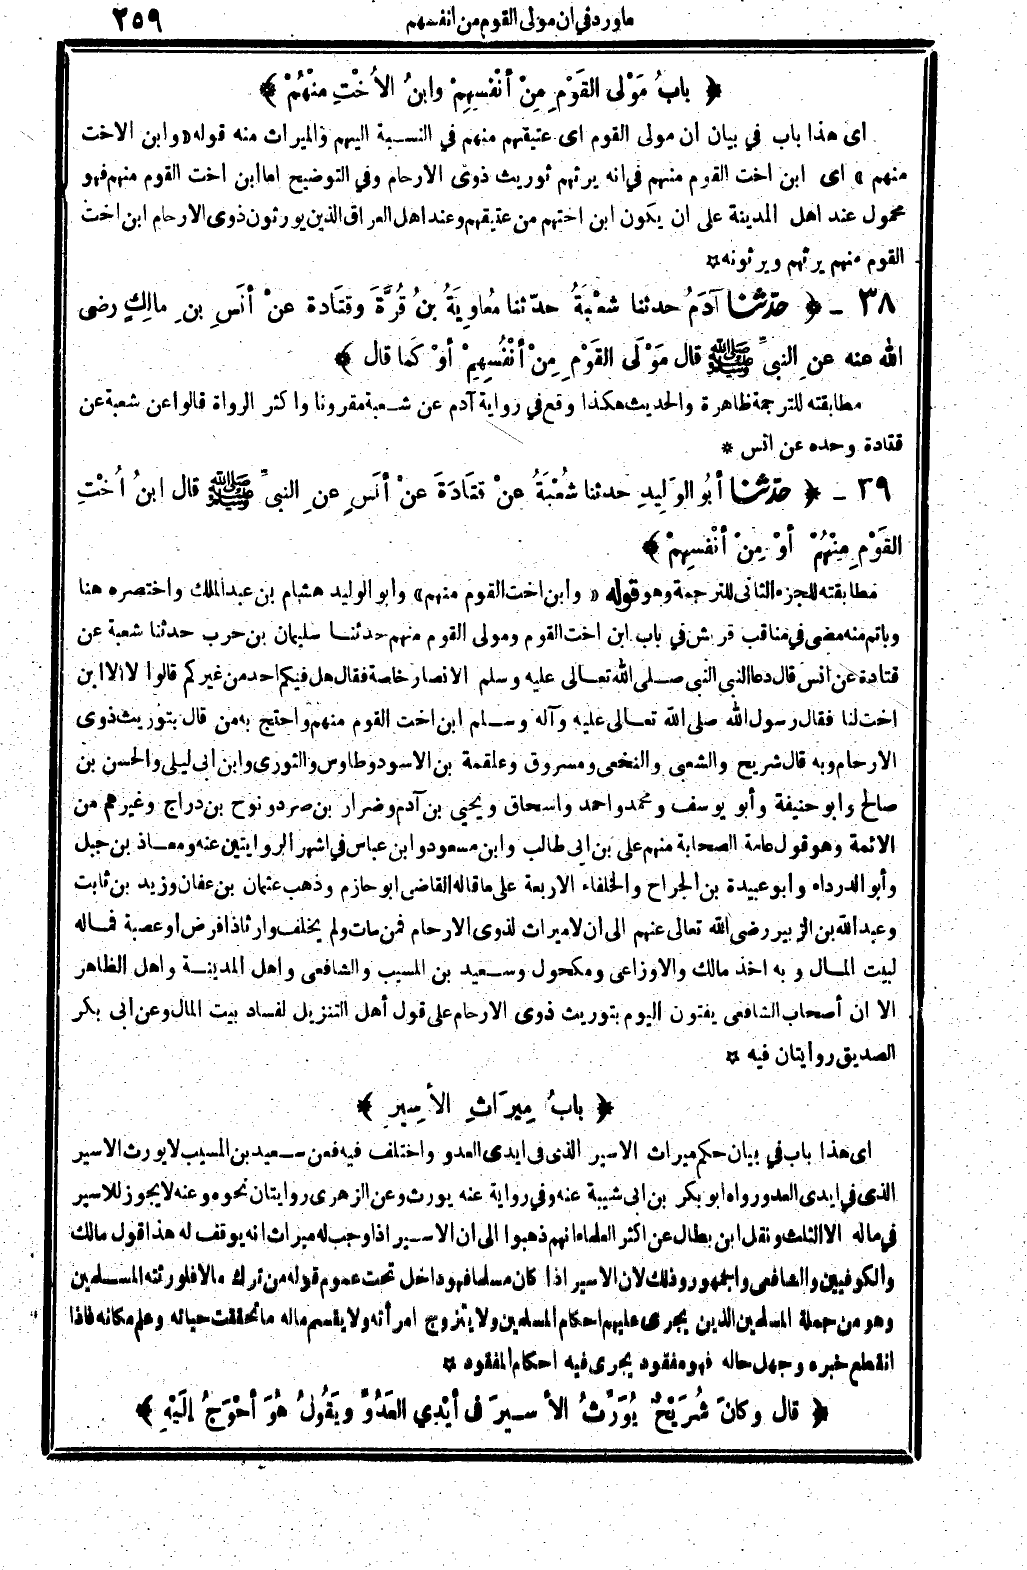 ما ورد في ان مولى القوم من انفسهم ٢٥٩
﴿ بابُ مَوْلى القَوْمِ مِنْ أنْفُسِهِمْ وابنُ الأُخْتِ مِنْهُمْ ﴾
اى هذا باب في بيان ان مولى القوم اى عتيقهم منهم في النسبة اليهم والميراث منه قوله «وابن الاخت
منهم» اى ابن اخت القوم منهم في انه يرثهم توريث ذوى الارحام وفي التوضيح اما ابن اخت القوم منهم فهو
محمول عند اهل المدينة على ان يكون ابن اختهم من عتيقهم وعند اهل العراق الذين يورثون ذوى الارحام ابن اخت
القوم منهم يرثهم ويرثونه ¤
٣٨ - ﴿ حدّثنا آدَمُ حدثنا شعْبَةُ حدّثنا مُعاوِيَةُ بنُ قُرَّةَ وقتَادة عنْ أنَسِ بنِ مالِكٍ رضى
الله عنه عنِ النبىِّ ﷺ قال مَوْلَى القَوْمِ مِنْ أنْفُسِهِمْ أوْ كَما قال ﴾
مطابقته للترجمة ظاهرة والحديث هكذا وقع في رواية آدم عن شعبة مقرونا واكثر الرواة قالوا عن شعبة عن
قتادة وحده عن انس *
٣٩ - ﴿ حدّثنا أبُو الوَلِيدِ حدثنا شُعْبَةُ عنْ قتَادَةَ عنْ أنَسٍ عنِ النبىِّ ﷺ قال ابنُ أُخْتِ
القَوْمِ مِنْهُمْ أوْ مِنْ أنْفُسِهِمْ ﴾
مطابقته للجزء الثانى للترجمة وهو قوله «وابن اخت القوم منهم» وأبو الوليد هشام بن عبد الملك واختصره هنا
وباتم منه مضى في مناقب قريش في باب ابن اخت القوم ومولى القوم منهم حدثنا سليمان بن حرب حدثنا شعبة عن
قتادة عن انس قال دعا النبي النبي صلى الله تعالى عليه وسلم الانصار خاصة فقال هل فيكم احد من غيركم قالوا لا الا ابن
اخت لنا فقال رسول الله صلى الله تعالى عليه وآله وسلم ابن اخت القوم منهم واحتج به من قال بتوريث ذوى
الارحام وبه قال شريح والشعبى والنخعى ومسروق وعلقمة بن الاسود وطاوس والثورى وابن ابى ليلى والحسن بن
صالح وابو حنيفة وأبو يوسف ومحمد واحمد واسحاق ويحيي بن آدم وضرار بن صرد ونوح بن دراج وغيرهم من
الائمة وهو قول عامة الصحابة منهم على بن ابى طالب وابن مسعود وابن عباس في اشهر الروايتين عنه ومعاذ بن جبل
وأبو الدرداء وأبو عبيدة بن الجراح والخلفاء الاربعة على ما قاله القاضى ابو حازم وذهب عثمان بن عفان وزيد بن ثابت
وعبد الله بن الزبير رضى الله تعالى عنهم الى ان لا ميراث لذوى الارحام فمن مات ولم يخلف وارثا ذا فرض أو عصبة فماله
لبيت المال وبه اخذ مالك والاوزاعى ومكحول وسعيد بن المسيب والشافعى واهل المدينة واهل الظاهر
الا ان أصحاب الشافعى يفتون اليوم بتوريث ذوى الارحام على قول أهل التنزيل لفساد بيت المال وعن ابى بكر
الصديق روايتان فيه ¤
﴿ بابُ مِيرَاثِ الأسِيرِ ﴾
اى هذا باب في بيان حكم ميراث الاسير الذى فى ايدى العدو واختلف فيه فعن سعيد بن المسيب لا يورث الاسير
الذى في ايدى العدو رواه ابو بكر بن ابى شيبة عنه وفي رواية عنه يورث وعن الزهرى روايتان نحوه وعنه لا يجوز للاسير
في ماله الا الثلث ونقل ابن بطال عن اكثر العلماء انهم ذهبوا الى ان الاسير اذا وجب له ميراث انه يوقف له هذا قول مالك
والكوفيين والشافعى والجمهور وذلك لان الاسير اذا كان مسلما فهو داخل تحت عموم قوله من ترك مالا فلورثته المسلمين
وهو من جملة المسلمين الذين يجرى عليهم احكام المسلمين ولا يتزوج امرأته ولا يقسم ماله ما تحققت حياته وعلم مكانه فاذا
انقطع خبره وجهل حاله فهو مفقود يجرى فيه احكام المفقود ¤
﴿ قال وكانَ شُرَيْحٌ يُوَرِّثُ الأسِيرَ فى أيْدِي العَدُوِّ ويَقُولُ هُوَ أحْوَجُ إلَيْهِ ﴾